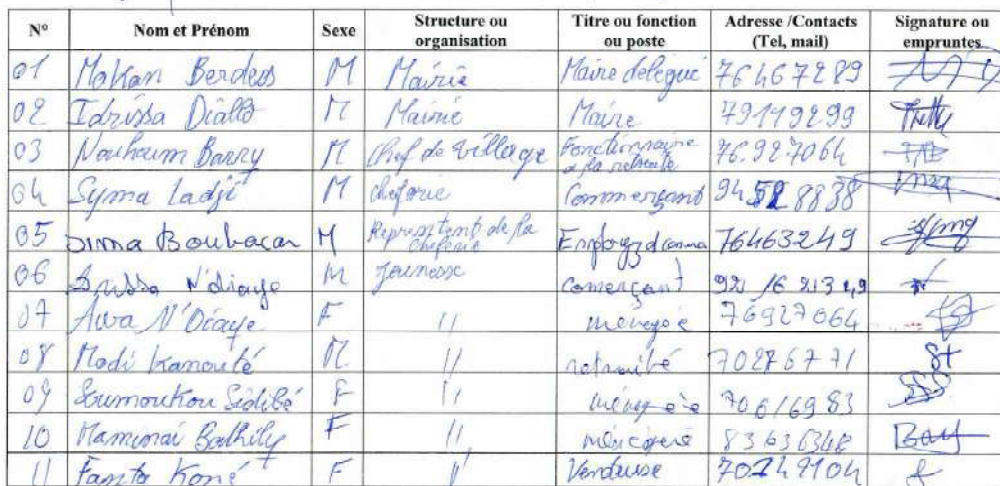 N° Nom et Prénom Sexe Structure ou organisation Titre ou fonction ou poste Adresse /Contacts (Tel, mail) Signature ou empruntes
01 Makan M Mairie Maire delegué 76467289
02 Idrissa Diallo M Mairie Maire 79119299
03 Nouhoum Barry M Chef de village Fonctionnaire a la retraite 76.927064
04 Syma Ladji M cheferie Commerçant 94 8838
05 Sima Boubacar M Representent de la cheferie 76463249
06 N'diaye M Jeunesse Comerçant
07 Awa N'Diaye F // 76927064
08 Modi Kanouté M // retraité 70276771
09 Soumoukou Sidibé F // 70616983
10 Bathily F // 83636348
11 Fanta Koné F // Vendeuse